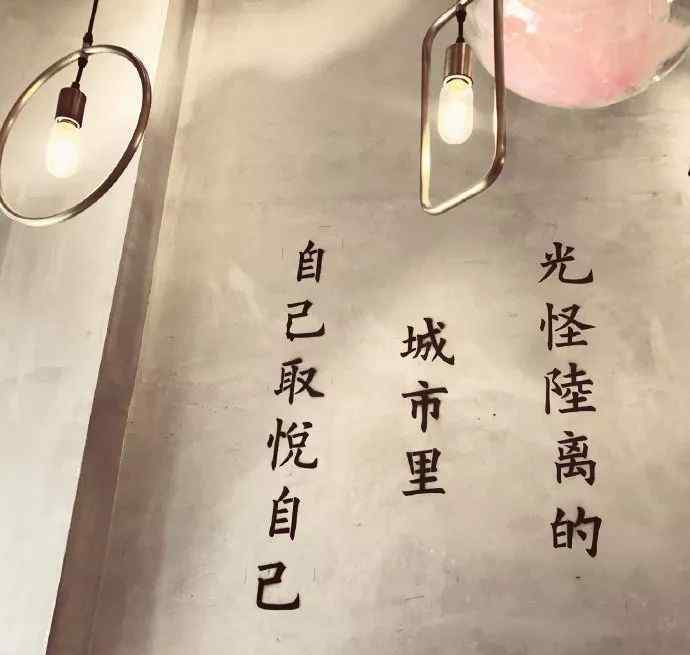 光怪陸离的
城市里
自己取悦自己